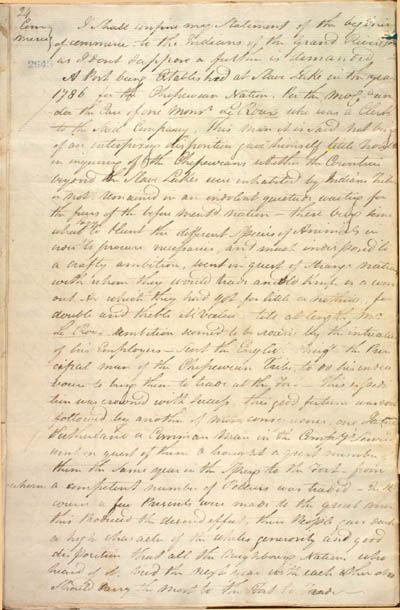 24
Com
merce
2645
I Shall confine my Statement of the beginning
of commerce to the Indians of the Grand River
as I dont suppose a further is demanded,
A Port being Established at Slave Lake in the year
1786 for the Chepewean Nation. Per the
der the Care of one Monsr Le Roux who was a Clerk
to the said Company, This man it is said not being
of an enterprising disposition gave himself little trouble
in inquiring of the Chepeweans whether the Countries
beyond the Slave Lakes were inhabited by Indians
or not. Remained in an indolent quietude waiting for
the furs of the before ment'd nation – these being
what to hunt the different Species of Animals in
order to procure necessaries, and much indisposed to
a crafty ambition, went in quest of strange nations
with whom they would trade an old knife or a worn
out Ax which they had got for little or nothing, for
double and treble its Value – till at length Mr
Le Roux Ambition seemed to be
of his Employers – Sent the English the Prin
cipal man of the Chepewean Tribe, to do his endea
vour to bring them to trade at the Fort – This expedi
tion was crowned with success, this good fortune was soon
followed by another of more consequence, one
Sutherland a Common Man in the Comp'y Service
went in quest of them & brought a great number
them the Same year in the to the Fort – from
whom a competent number of Peltries was traded –
course a few Presents were made to the great men
this Produced the desired effect, these People gave such
a high character of the whites generosity and good
disposition that all the Neighbouring Nations who
heard of it, the next year with each other who
Should carry the most to the Fort to trade